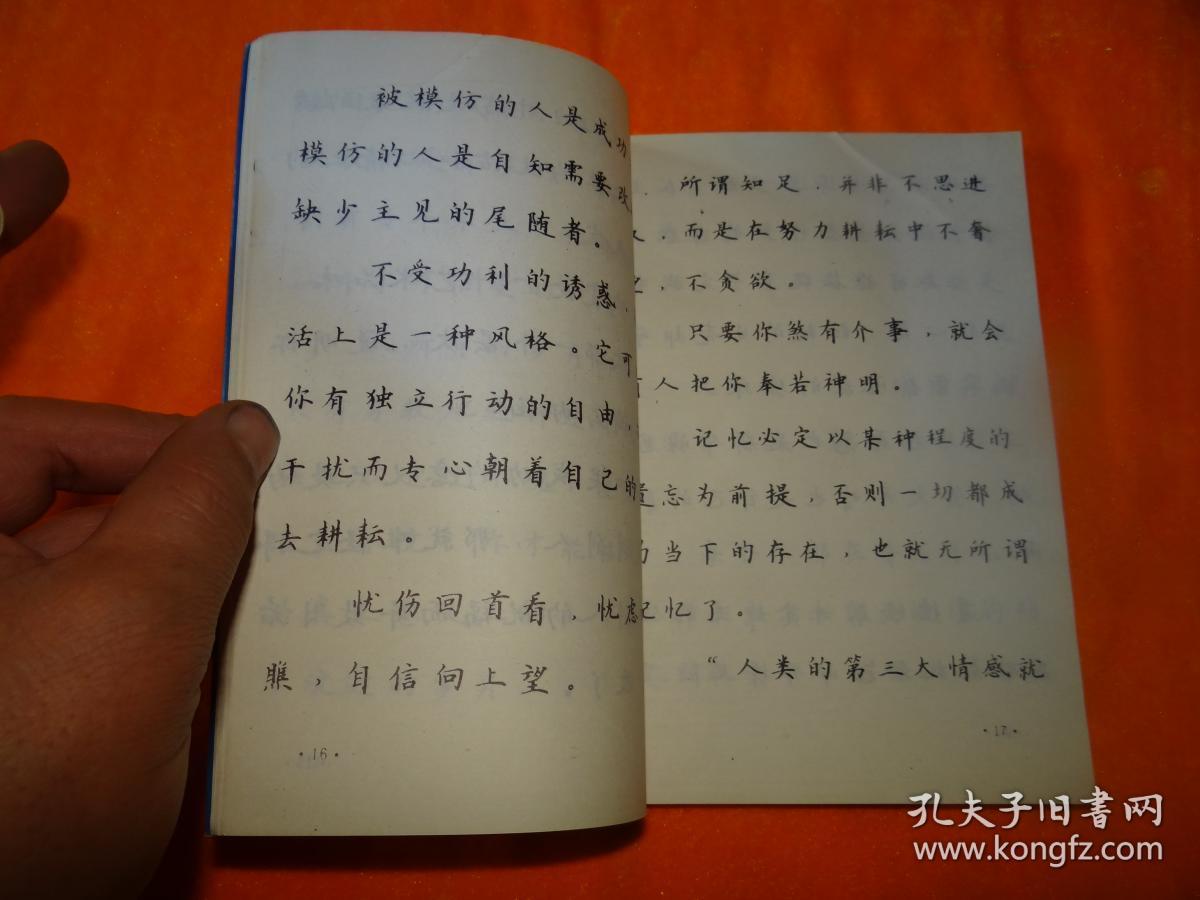 被模仿的人是成功
模仿的人是自知需要改
缺少主见的尾随者。
不受功利的诱惑，
活上是一种风格。它可
你有独立行动的自由，
干扰而专心朝着自己的
去耕耘。
忧伤回首看，忧虑
瞧，自信向上望。
·16·
所谓知足，并非不思进
，而是在努力耕耘中不奢
，不贪欲。
只要你煞有介事，就会
有人把你奉若神明。
记忆必定以某种程度的
遗忘为前提，否则一切都成
为当下的存在，也就无所谓
记忆了。
“人类的第三大情感就
·17·
孔夫子旧书网
www.kongfz.com